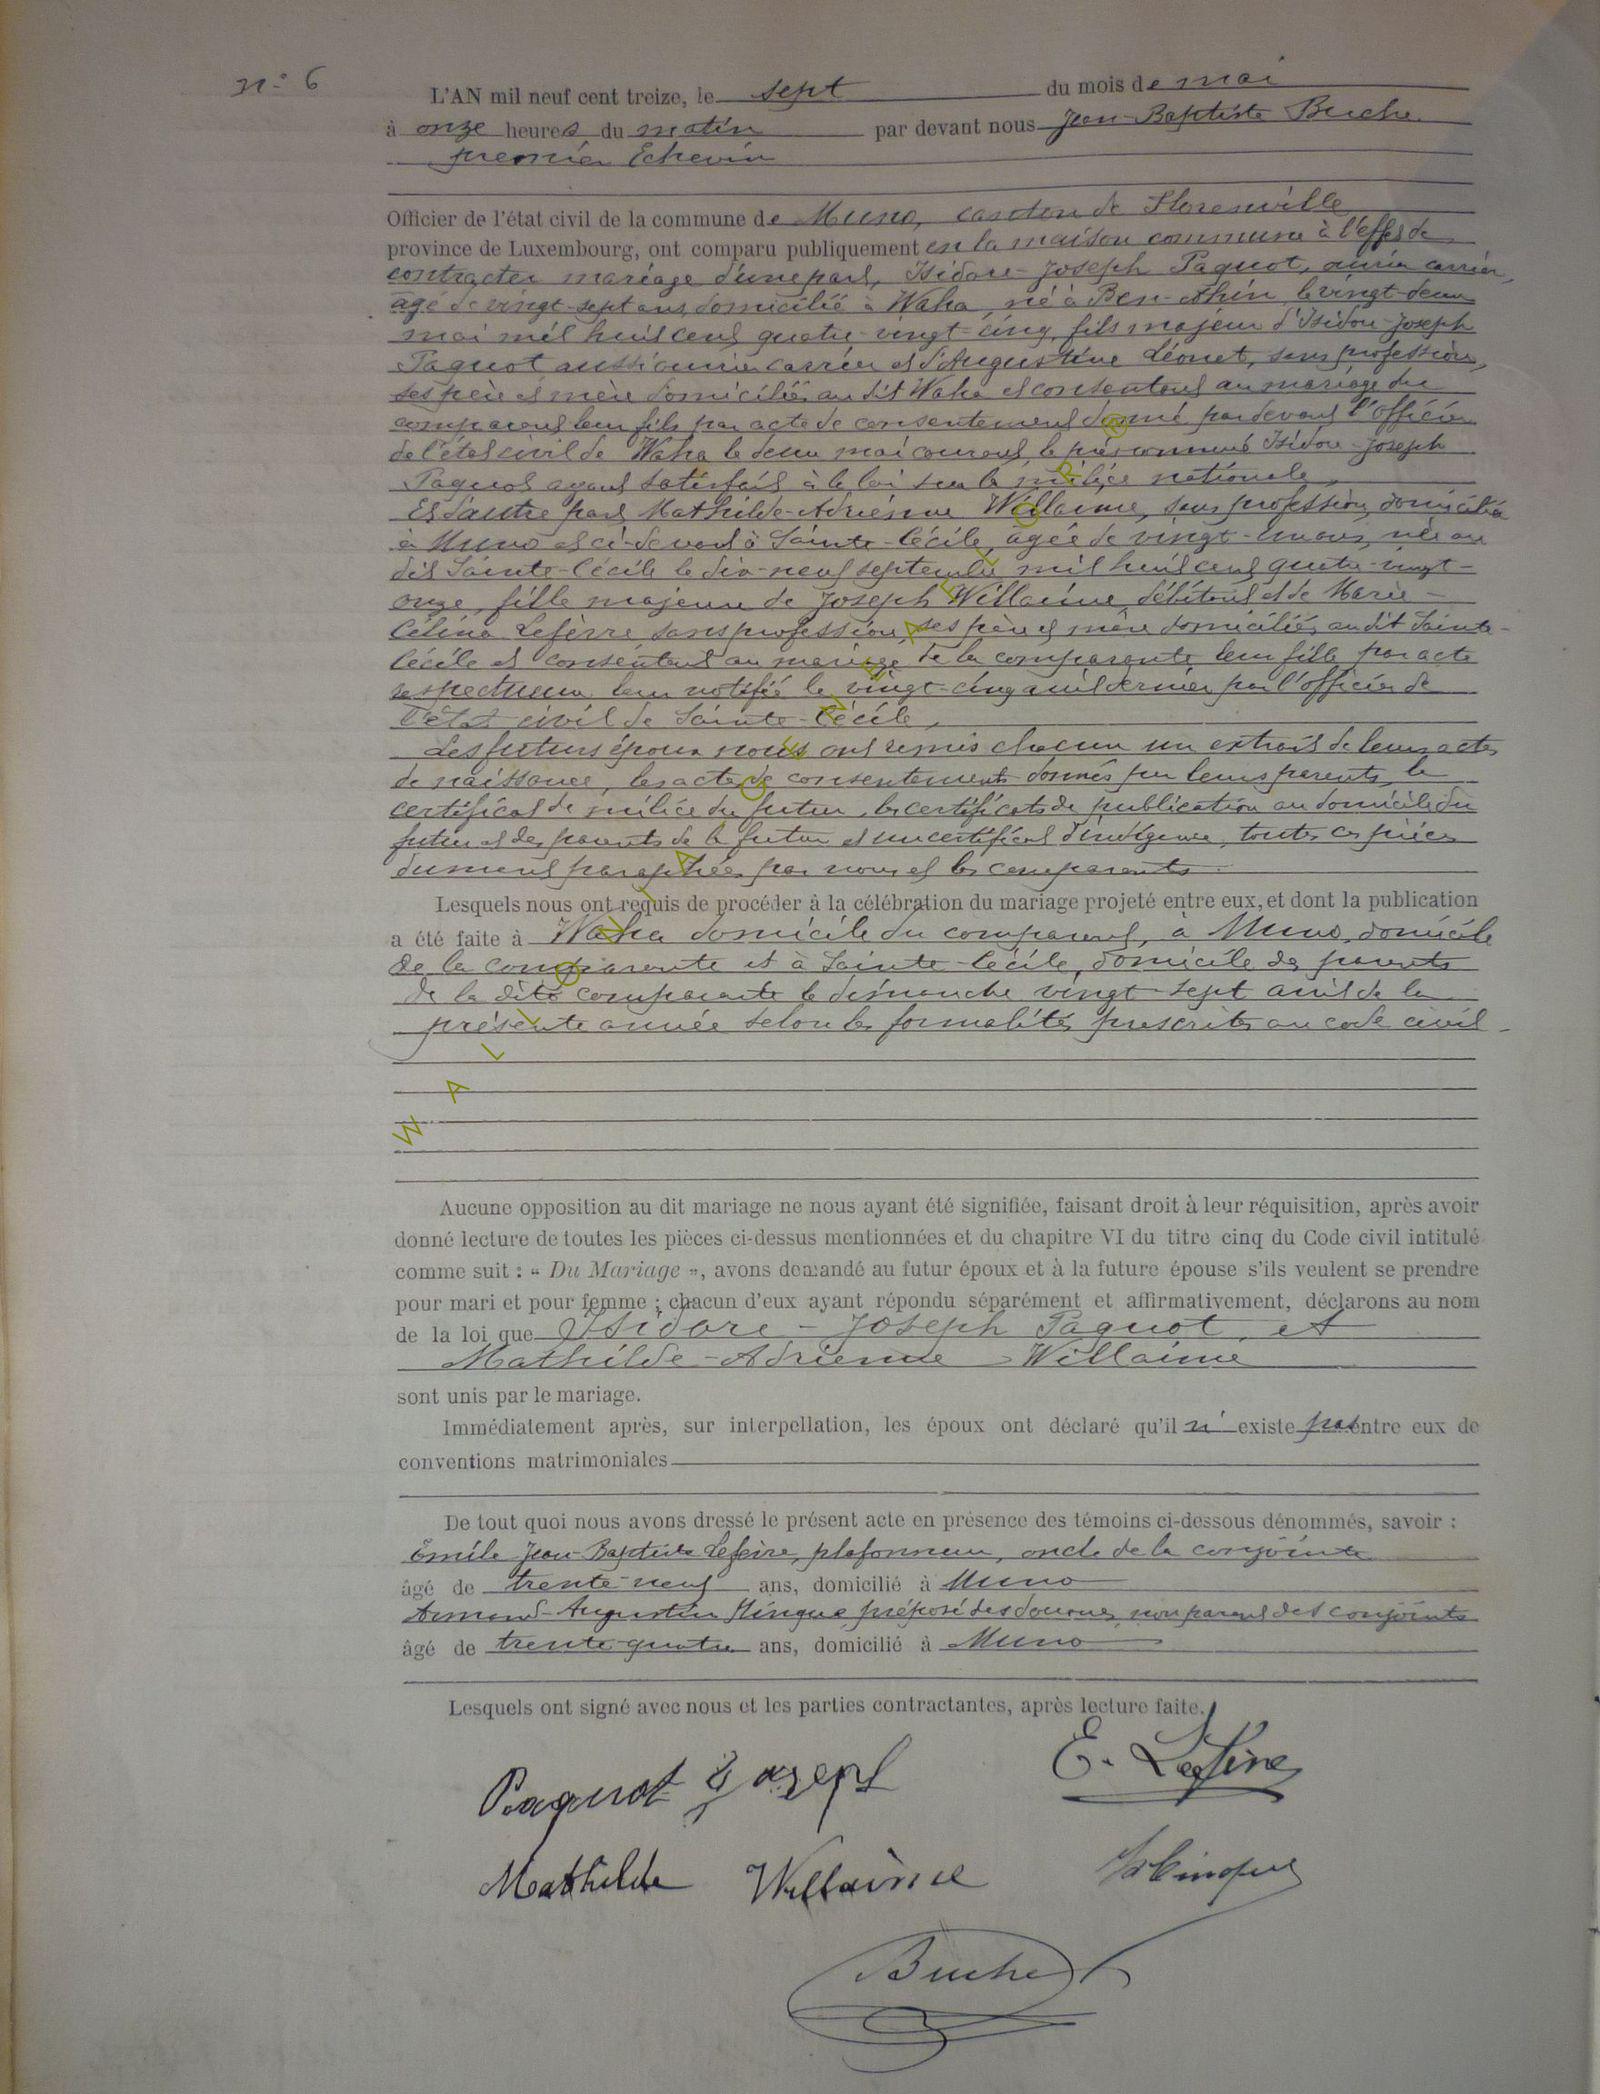 n° 6
L'AN mil neuf cent treize, le sept du mois de mai
à onze heures du matin par devant nous Jean-Baptiste Buche
premier Echevin
Officier de l'état civil de la commune de Muno, canton de Florenville
province de Luxembourg, ont comparu publiquement en la maison commune à l'effet de
contracter mariage d'une part, Isidore-Joseph Paquot, ouvrier carrier,
âgé de vingt-sept ans, domicilié à Waha, né à Ben-Ahin, le vingt-deux
mai mil huit cent quatre-vingt-cinq, fils majeur d'Isidore-Joseph
Paquot aussi ouvrier carrier et d'Augustine Léonet, sans profession,
ses père et mère domiciliés au dit Waha et consentant au mariage du
comparant leur fils par acte de consentement donné par devant l'officier
de l'état civil de Waha le deux mai courant, le prénommé Isidore-Joseph
Paquot ayant satisfait à la loi sur la milice nationale,
Et d'autre part Mathilde-Adrienne Willaime, sans profession, domiciliée
à Muno et ci-devant à Sainte-Cécile, agée de vingt-un ans, née au
dit Sainte-Cécile le dix-neuf septembre mil huit cent quatre-vingt-
onze, fille majeure de Joseph Willaime, débitant et de Marie-
Célina Lefèvre sans profession, ses père et mère domiciliés au dit Sainte-
Cécile et consentant au mariage de la comparante, leur fille par acte
respectueux leur notifié le vingt-cinq avril dernier par l'officier de
l'état civil de Sainte-Cécile,
Les futurs époux nous ont remis chacun un extrait de leurs actes
de naissance, les actes de consentements donnés par leurs parents, le
certificat de milice du futur, les certificats de publication au domicile du
futur et des parents de la future et un certificat d'indigence, toutes ces pièces
dument paraphées par nous et les comparants
Lesquels nous ont requis de procéder à la célébration du mariage projeté entre eux, et dont la publication
a été faite à Waha domicile du comparant, à Muno, domicile
de la comparante et à Sainte-Cécile, domicile des parents
de la dite comparante le dimanche vingt-sept avril de la
présente année selon les formalités prescrites au code civil
Aucune opposition au dit mariage ne nous ayant été signifiée, faisant droit à leur réquisition, après avoir
donné lecture de toutes les pièces ci-dessus mentionnées et du chapitre VI du titre cinq du Code civil intitulé
comme suit : « Du Mariage », avons demandé au futur époux et à la future épouse s'ils veulent se prendre
pour mari et pour femme ; chacun d'eux ayant répondu séparément et affirmativement, déclarons au nom
de la loi que Isidore-Joseph Paquot, et
Mathilde-Adrienne Willaime
sont unis par le mariage.
Immédiatement après, sur interpellation, les époux ont déclaré qu'il n'existe pas entre eux de
conventions matrimoniales
De tout quoi nous avons dressé le présent acte en présence des témoins ci-dessous dénommés, savoir :
Emile Jean-Baptiste Lefèvre, plafonneur, oncle de la conjointe
âgé de trente-neuf ans, domicilié à Muno
Armand-Augustin Hinque, préposé des douanes, non parent des conjoints
âgé de trente-quatre ans, domicilié à Muno
Lesquels ont signé avec nous et les parties contractantes, après lecture faite.
Paquot Joseph E. Lefèvre
Mathilde Willaime
Buche